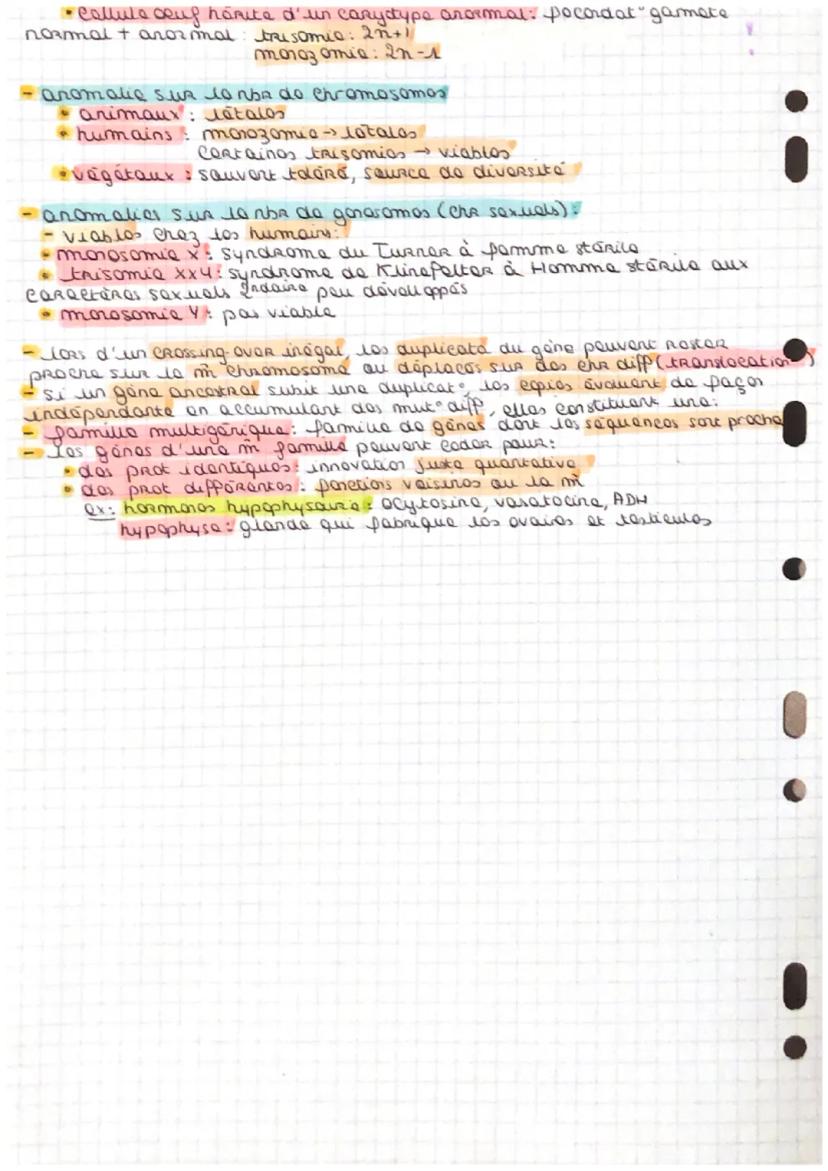 • Cellule oeuf hérite d'un caryotype anormal: fécondat° gamète
normal + anormal : trisomie: 2n+1
monozomie: 2n-1
- anomalie sur le nbr de chromosomes
• animaux : létales
• humains : monozomie → létales
certaines trisomies → viables
• végétaux : souvent toléré, source de diversité
- anomalies sur le nbr de gonosomes (chr sexuels):
- viables chez les humains:
• monosomie X : syndrome du Turner à femme stérile
• trisomie XXY : syndrome de Klinefelter à Homme stérile aux
caractères sexuels 2ndaire peu développés
• monosomie Y : pas viable
- lors d'un crossing-over inégal, les duplicata du gène peuvent rester
proche sur le m̂ chromosome ou déplacés sur des chr diff (translocation)
- si un gène ancestral subit une duplicat°, les copies évoluent de façon
indépendante en accumulant des mut° diff, elles constituent une:
- famille multigénique: famille de gènes dont les séquences sont proche
- les gènes d'une m̂ famille peuvent coder pour:
• des prot identiques: innovation juste quantative
• des prot différentes: fonctions voisines ou la m̂
ex: hormones hypophysaire: ocytosine, vasotocine, ADH
hypophyse: glande qui fabrique les ovaires et testicules